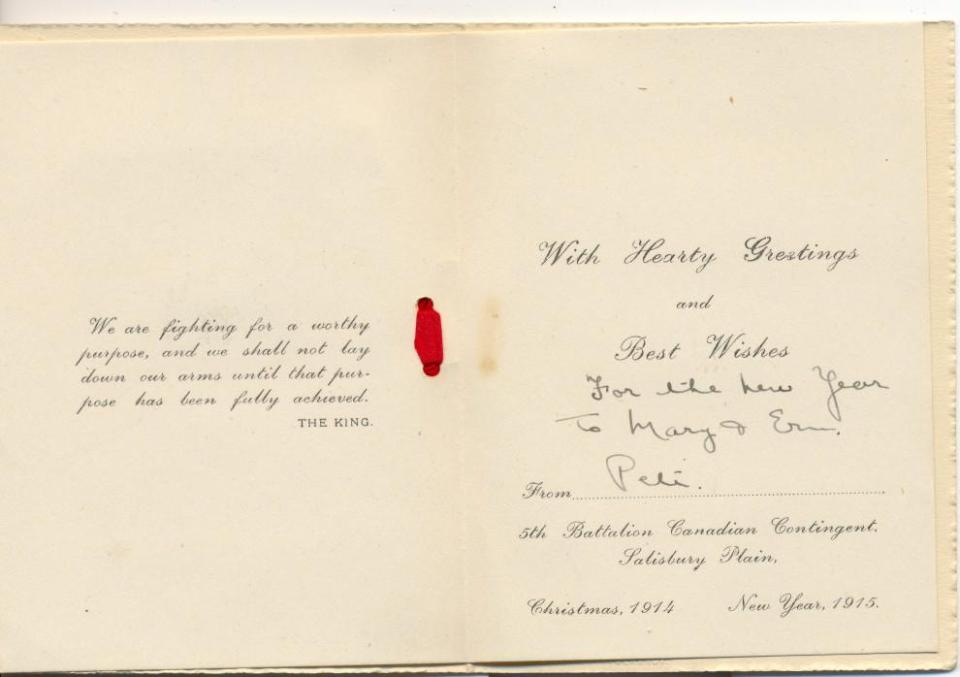 We are fighting for a worthy
purpose, and we shall not lay
down our arms until that pur-
pose has been fully achieved.
THE KING.
With Hearty Greetings
and
Best Wishes
For the new Year
to Mary & Ern.
From Pete.
5th Battalion Canadian Contingent.
Salisbury Plain,
Christmas, 1914 New Year, 1915.